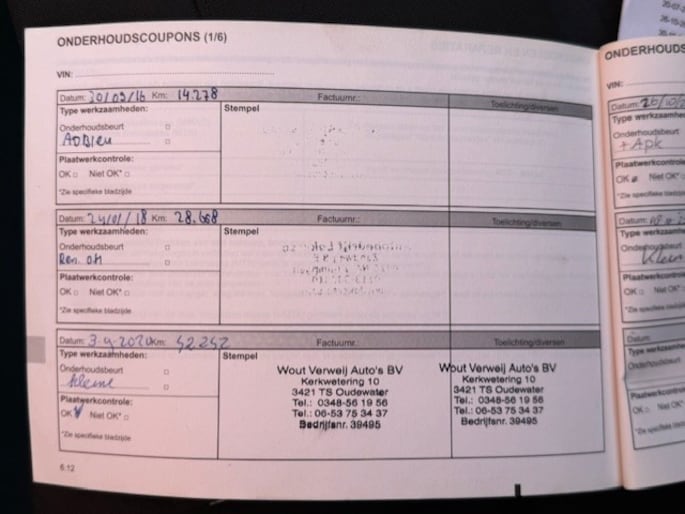 ONDERHOUDSCOUPONS (1/6)
VIN:
Datum: 30/03/16 Km: 14.278 Factuurnr.: Toelichting/diversen
Type werkzaamheden: Stempel
Onderhoudsbeurt
Plaatwerkcontrole:
OK Niet OK*
*Zie specifieke bladzijde
Datum: 24/01/18 Km: 28.668 Factuurnr.: Toelichting/diversen
Type werkzaamheden: Stempel
Onderhoudsbeurt
Plaatwerkcontrole:
OK Niet OK*
*Zie specifieke bladzijde
Datum: 3-9-2020 Km: 42.242 Factuurnr.: Toelichting/diversen
Type werkzaamheden: Stempel
Onderhoudsbeurt
kleine
Plaatwerkcontrole:
OK Niet OK*
*Zie specifieke bladzijde
Wout Verweij Auto's BV
Kerkwetering 10
3421 TS Oudewater
Tel.: 0348-56 19 56
Tel.: 06-53 75 34 37
Bedrijfsnr. 39495
Wout Verweij Auto's BV
Kerkwetering 10
3421 TS Oudewater
Tel.: 0348-56 19 56
Tel.: 06-53 75 34 37
Bedrijfsnr. 39495
6.12
ONDERHOUDS
VIN:
Datum: 26/10/2
Type werkzaamheden
Onderhoudsbeurt
+ Apk
Plaatwerkcontrole
OK Niet OK*
*Zie specifieke bladzijde
Datum:
Type werkzaamhe
Onderhoudsbeurt
Klein
Plaatwerkcontrole
OK Niet OK*
*Zie specifieke bladzijde
Datum:
Type werkzaamhe
Onderhoudsbeurt
Plaatwerkcontrole
OK Niet OK*
*Zie specifieke bladzijde